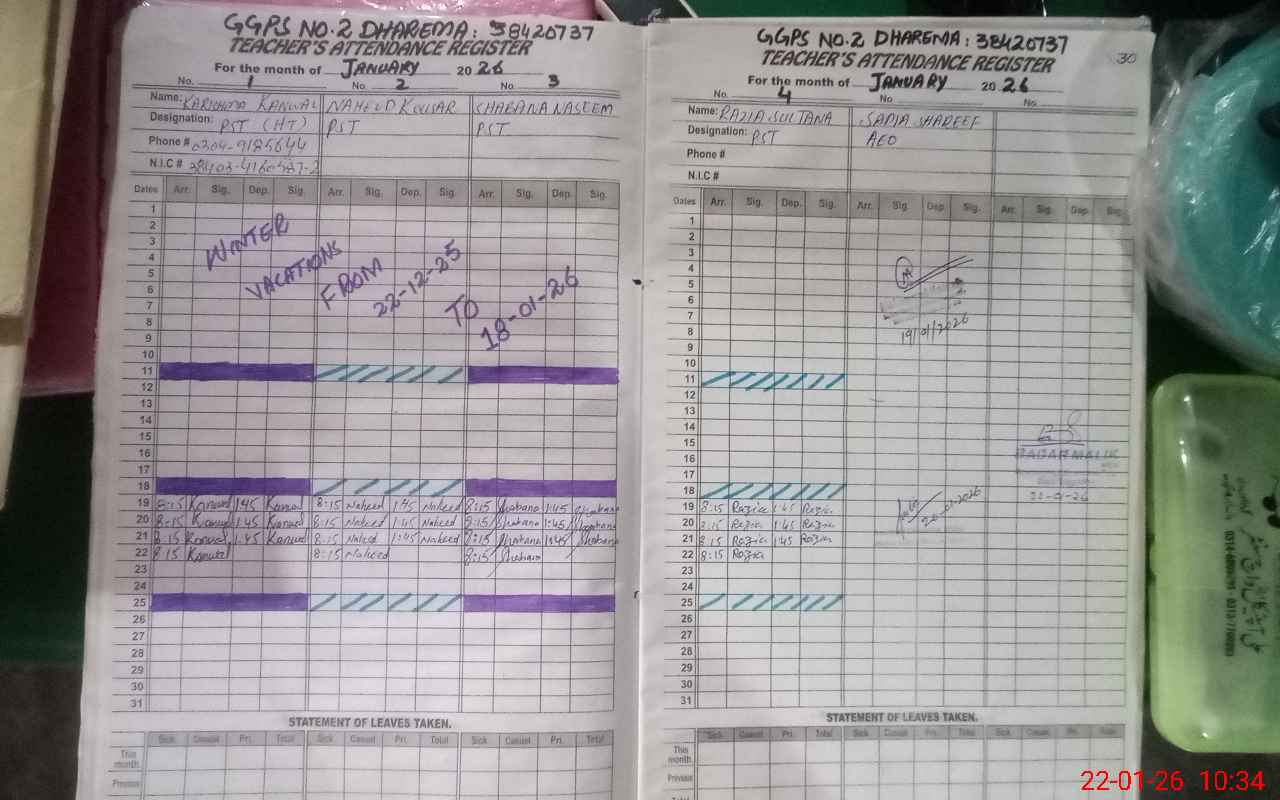 GGPS NO.2 DHAREMA: 38420737
TEACHER'S ATTENDANCE REGISTER
For the month of JANUARY 2026
No. 1 No 2 No 3
Name: KARISHMA KANWAL NAHEED KOUSAR SHABANA NASEEM
Designation: PST (HT) PST PST
Phone # 0304-9185644
N.I.C #
Dates Arr. Sig. Dep. Sig. Arr. Sig. Dep. Sig. Arr. Sig. Dep. Sig.
1
2
3
4
5
6
7
8
9
10
11
12
13
14
15
16
17
18
WINTER
VACATIONS
FROM
22-12-25
TO
18-01-26
19 8:15 Kanwal 1:45 Kanwal 8:15 Naheed 1:45 Naheed 8:15 Shabana 1:45 Shabana
20 8:15 Kanwal 1:45 Kanwal 8:15 Naheed 1:45 Naheed 8:15 Shabana 1:45 Shabana
21 8:15 Kanwal 1:45 Kanwal 8:15 Naheed 1:45 Naheed 8:15 Shabana 1:45 Shabana
22 8:15 Kanwal 8:15 Naheed 8:15 Shabana
23
24
25
26
27
28
29
30
31
STATEMENT OF LEAVES TAKEN.
Sick Casual Pri. Total Sick Casual Pri. Total Sick Casual Pri. Total
This month.
Previous
GGPS NO.2 DHAREMA: 38420737
TEACHER'S ATTENDANCE REGISTER
30
For the month of JANUARY 2026
No. 4 No No.
Name: RAZIA SULTANA SADIA SHAREEF
Designation: PST AEO
Phone #
N.I.C #
Dates Arr. Sig. Dep. Sig. Arr. Sig. Dep. Sig. Arr. Sig. Dep. Sig.
1
2
3
4
5
6
7
8
9
10
11
12
13
14
15
16
17
18
19/01/2026
MALIK
20-01-2026
19 8:15 Razia 1:45 Razia
20 8:15 Razia 1:45 Razia
21 8:15 Razia 1:45 Razia
22 8:15 Razia
23
24
25
26
27
28
29
30
31
STATEMENT OF LEAVES TAKEN.
Sick Casual Pri. Total Sick Casual Pri. Total Sick Casual Pri.
This month.
Previous
Total
22-01-26 10:34